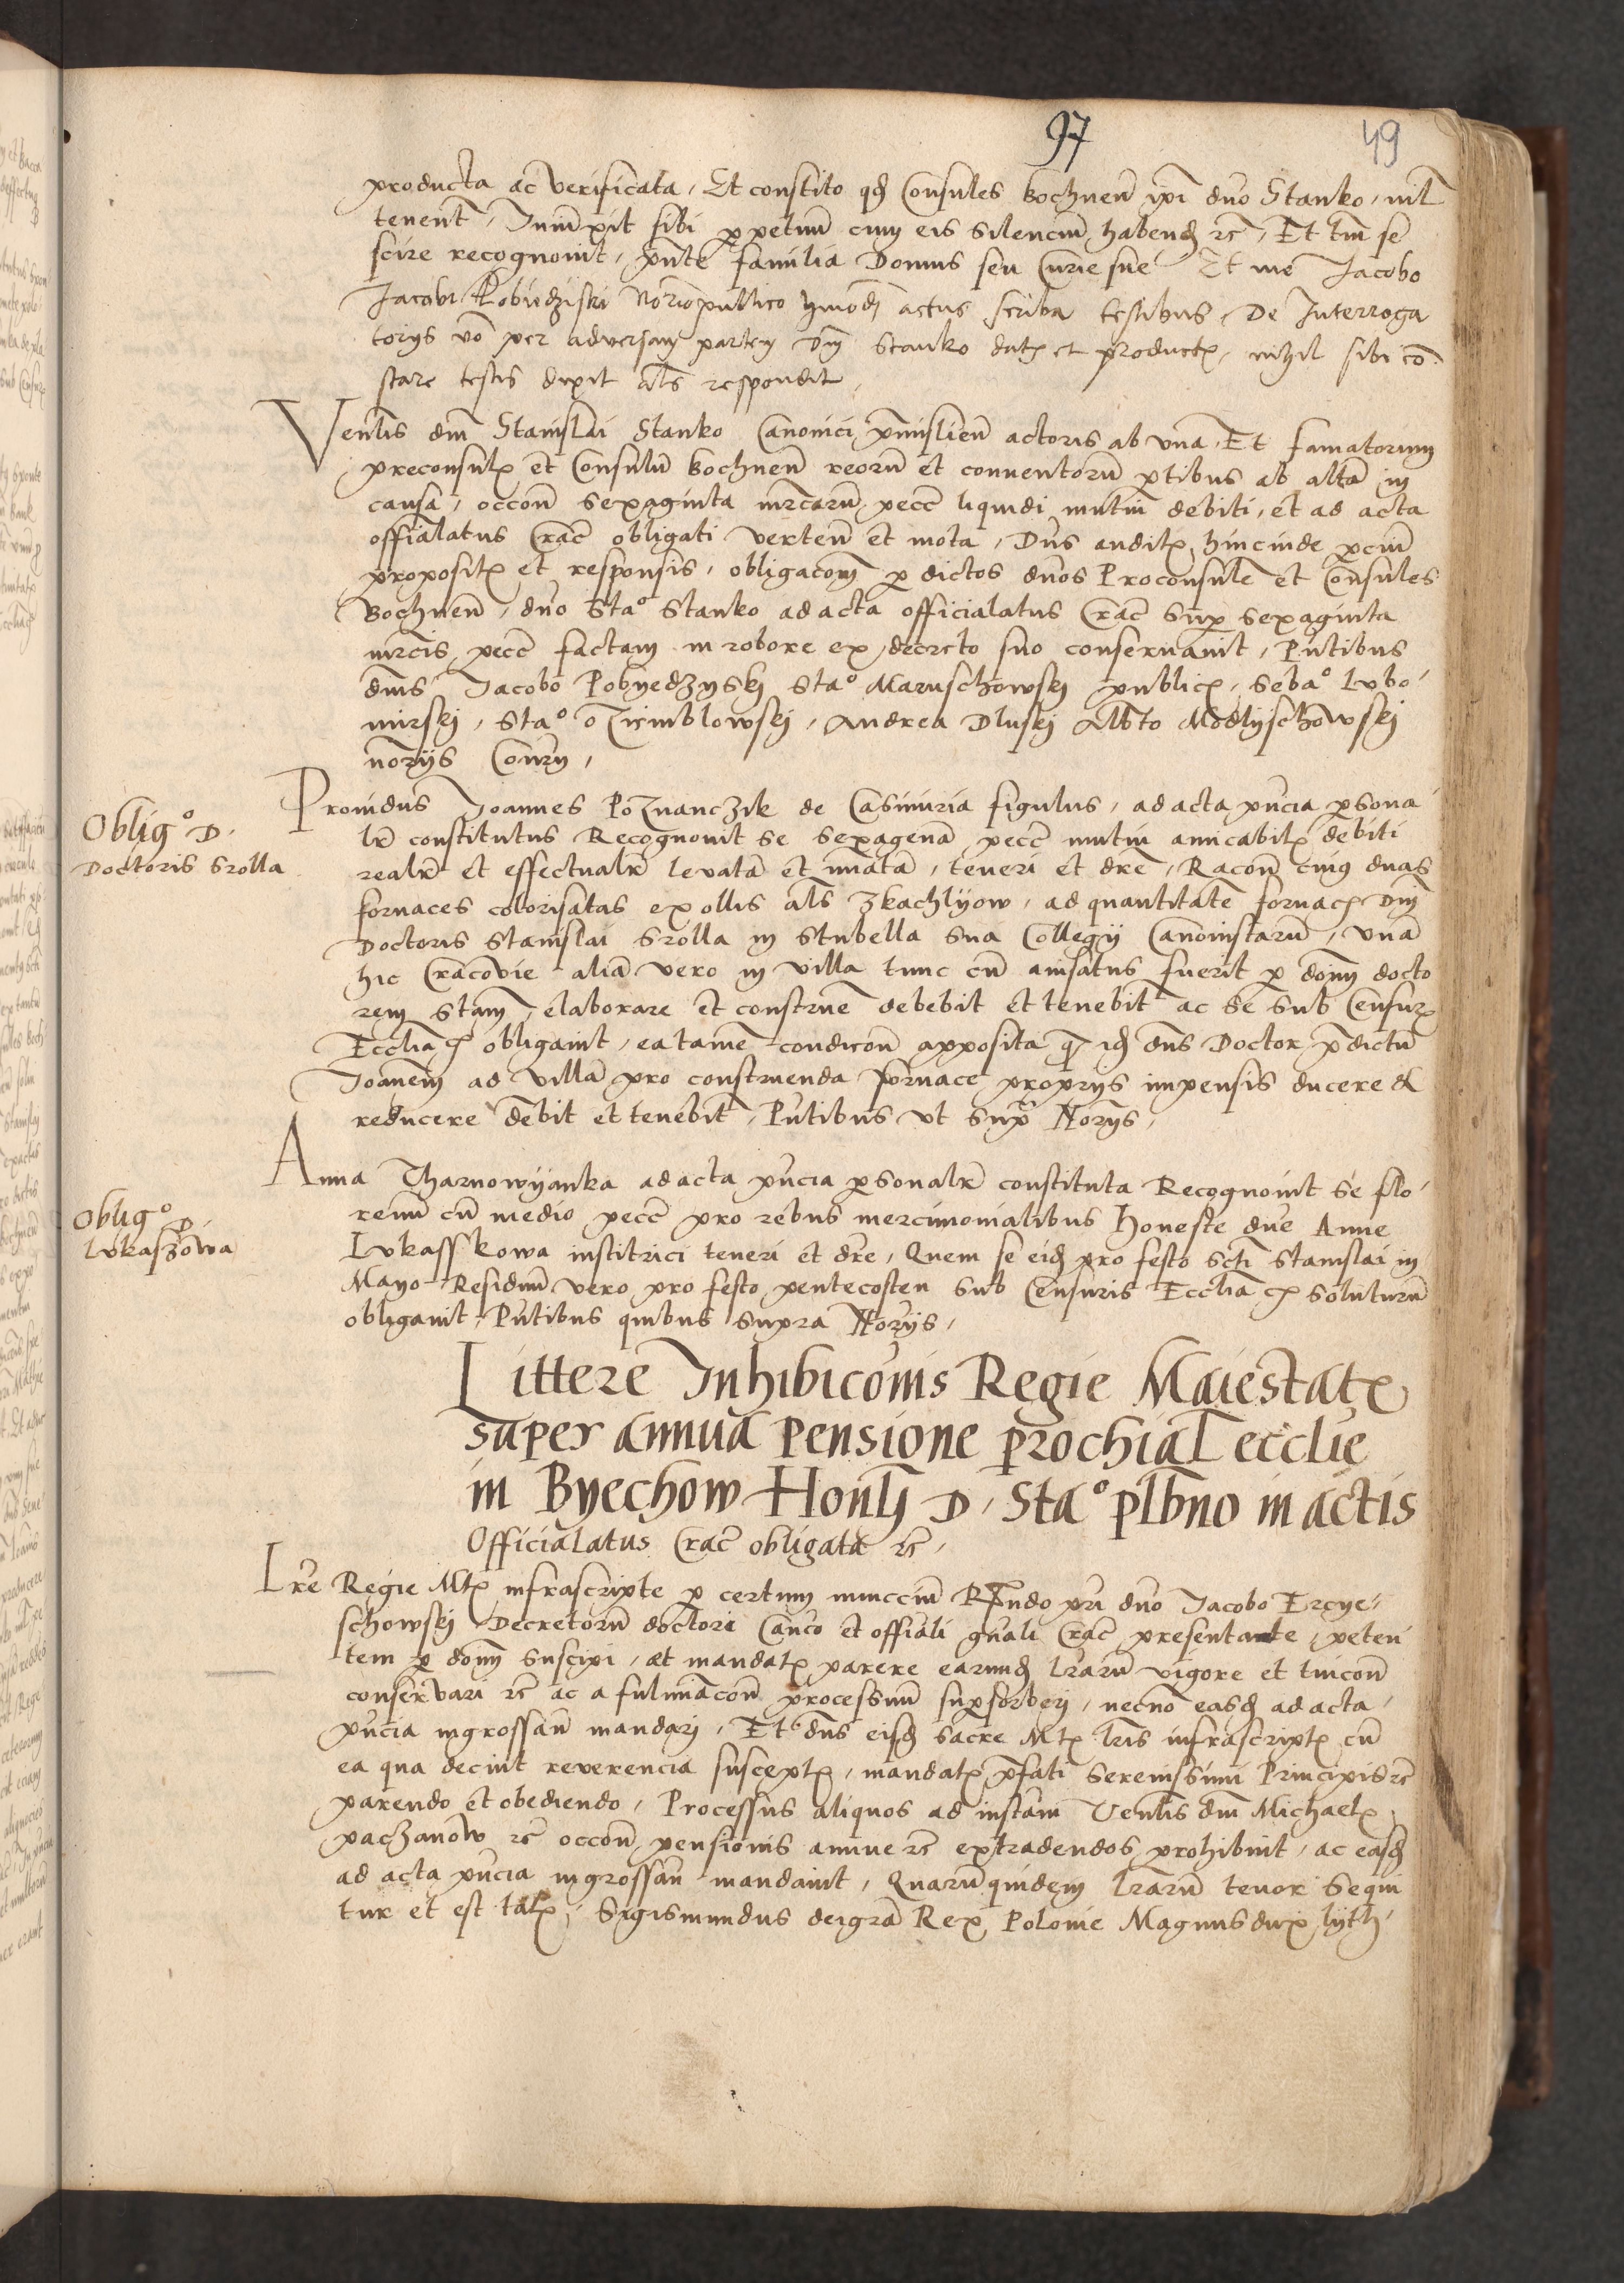 97
49
producta ac verificata, Et constito qd Consules Bochnen ipi dno Stanko, nil
tenent, Iniunxit sibi ppetuu cum eis Silenciu habend etc, Et tm se
scire recognouit, pnte familia Domus seu Curie sue Et me Jacobo
Jacobi Pobiedziski Norio publico hmoi actus scriba testibus, De Interroga
torys vo per adversam partem Dnj Stanko dat et product, nihil sibi co
stare testis dixit als respondit,
Venlis dnj Stanislai Stanko Canonici pmislien actoris ab vna, Et famatorum
preconsul et Consulu Bochnen reoru et conuentoru ptibus ab alta in
causa, occone sexaginta mrcaru pecc liquidi mutui debiti, et ad acta
offialatus Crac obligati verten et mota, Dns audit hincinde pciu
proposit et responsis, obligacom p dictos dnos Proconsule et Consules
Bochnen, dno Stao Stanko ad acta officialatus Crac sup sexaginta
mrcis pecc factam in robore ex decreto suo conseruauit, Pntibus
dnis Jacobo Pobyedzyskj Stao Maruschowskj public, Sebao Lubo
mirskj, Stao Dzirmblowskj, Andrea Dluskj Albto Modlyschowskj
noryis Coury,
Oblig° D.
Doctoris Srolla
Prouidus Joannes Poznanczik de Casimiria figulus, ad acta pncia psona
lr constitutus Recognouit se sexagena pecc mutui amicabil debiti
realr et effectualr leuata et nuata, teneri et dre, Racone cuius duas
fornaces colorisatas ex ollis als zkachlyow, ad quantitate fornac Dnj
Doctoris Stanislai Srolla in Stubella sua Collegij Canonistaru, vna
hic Cracouie alia vero in villa tunc cu auisatus fuerit p dom docto
rem Stam, elaborare et construe debebit et tenebit ac se sub Censur
Ecclia obligauit, ea tame condicone apposita q id dns Doctor pdictu
Joanem ad villa pro construenda fornace proprys impensis ducere et
reducere debit et tenebit, Pntibus vt supra Norys,
Oblig° D.
Lukaszowa
Anna Tharnowyanka ad acta pncia psonalr constituta Recognouit se flo
renu cu medio pecc pro rebus mercimonialibus Honeste due Anne
Lukasskowa institrici teneri et dre, Quem se eid pro festo Scti Stanislai in
Mayo Residuu vero pro festo pentecosten sub Censuris Ecclia soluturu
obligauit Pntibus quibus supra Noryis,
Littere Inhibiconis Regie Maiestat
super annua pensione prochial ecclie
in Byechow Honli D. Stao plbno in actis
Officialatus Crac obligata etc,
Lre Regie Mt infrascripte p certum nuncciu Rndo pri dno Jacobo Ercye
schowskj Decretoru doctori Canco et offiali gnali Crac presentate, peten
tem p dom suscipi, et mandat parere earund lraru vigore et tuicon
conservari etc ac a fulminacone processuum supsorberj, necno easd ad acta
pncia ingrossan mandarj, Et dns eisd sacre Mt lris infrascript cu
ea qua decuit reverencia suscept, mandat pfati Serenissimi Principis etc
parendo et obediendo, Processus aliquos ad instam Venlis dnj Michael
paczanow etc occone pensionis annue etc extradendos prohibuit, ac easd
ad acta pncia ingrossan mandauit, Quaru quidem lraru tenor sequi
tur et est tal, Sigismundus dei gra Rex Polonie Magnus dux lyth